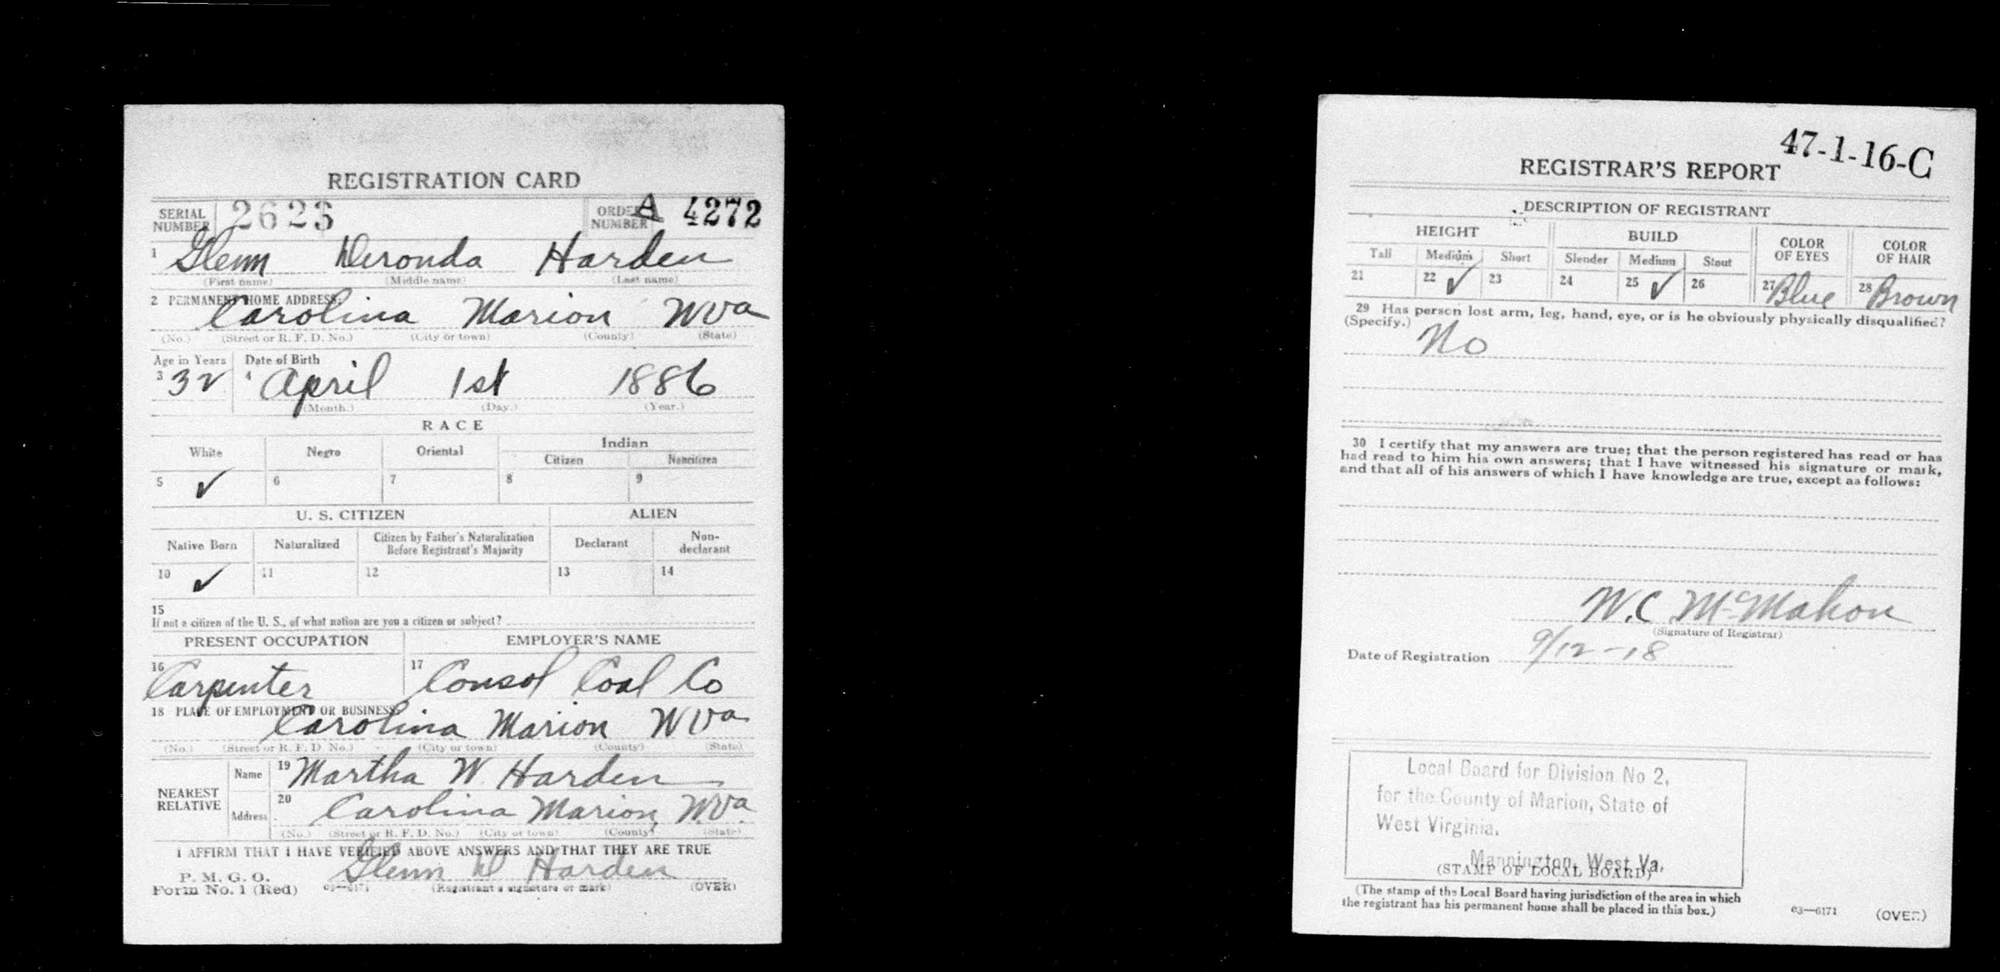 REGISTRATION CARD
SERIAL NUMBER 2623 ORDER NUMBER A 4272
1 Glenn Deronda Harden
(First name) (Middle name) (Last name)
2 PERMANENT HOME ADDRESS:
Carolina Marion W Va
(No.) (Street or R. F. D. No.) (City or town) (County) (State)
Age in Years Date of Birth
3 32 4 April 1st 1886
(Month.) (Day.) (Year.)
RACE
White Negro Oriental Indian
Citizen Noncitizen
5 ✓ 6 7 8 9
U. S. CITIZEN ALIEN
Native Born Naturalized Citizen by Father's Naturalization Before Registrant's Majority Declarant Non-declarant
10 ✓ 11 12 13 14
15
If not a citizen of the U. S., of what nation are you a citizen or subject?
PRESENT OCCUPATION EMPLOYER'S NAME
16 Carpenter 17 Consol Coal Co
18 PLACE OF EMPLOYMENT OR BUSINESS:
Carolina Marion W Va
(No.) (Street or R. F. D. No.) (City or town) (County) (State)
NEAREST RELATIVE Name 19 Martha W. Harden
Address 20 Carolina Marion W Va.
(No.) (Street or R. F. D. No.) (City or town) (County) (State)
I AFFIRM THAT I HAVE VERIFIED ABOVE ANSWERS AND THAT THEY ARE TRUE
P. M. G. O.
Form No. 1 (Red) 03—6171 Glenn D Harden
(Registrant's signature or mark) (OVER)
47-1-16-C
REGISTRAR'S REPORT
DESCRIPTION OF REGISTRANT
HEIGHT BUILD COLOR OF EYES COLOR OF HAIR
Tall Medium Short Slender Medium Stout
21 22 ✓ 23 24 25 ✓ 26 27 Blue 28 Brown
29 Has person lost arm, leg, hand, eye, or is he obviously physically disqualified?
(Specify.) No
30 I certify that my answers are true; that the person registered has read or has
had read to him his own answers; that I have witnessed his signature or mark,
and that all of his answers of which I have knowledge are true, except as follows:
W.C. McMahon
(Signature of Registrar)
Date of Registration 9/12-18
Local Board for Division No 2,
for the County of Marion, State of
West Virginia.
Mannington, West Va.
(STAMP OF LOCAL BOARD)
(The stamp of the Local Board having jurisdiction of the area in which
the registrant has his permanent home shall be placed in this box.)
03—6171 (OVER)